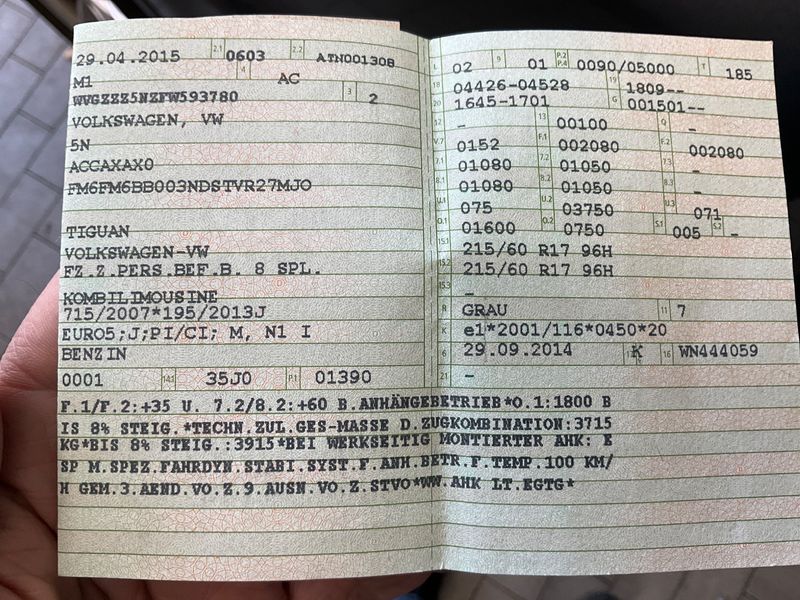 29.04.2015 2.1 0603 2.2 ATN001308
M1 4 AC
WVGZZZ5NZFW593780 3 2
VOLKSWAGEN, VW
5N
ACCAXAX0
FM6FM6BB003NDSTVR27MJO
TIGUAN
VOLKSWAGEN-VW
FZ.Z.PERS.BEF.B. 8 SPL.
KOMBILIMOUSINE
715/2007*195/2013J
EURO5;J;PI/CI; M, N1 I
BENZIN
0001 14.1 35J0 P.1 01390
L 02 9 01 P.2 P.4 0090/05000 T 185
18 04426-04528 19 1809--
20 1645-1701 G 001501--
12 - 13 00100 Q -
V.7 0152 F.1 002080 F.2 002080
7.1 01080 7.2 01050 7.3 -
8.1 01080 8.2 01050 8.3 -
U.1 075 U.2 03750 U.3 071
O.1 01600 O.2 0750 S.1 005 S.2 -
15.1 215/60 R17 96H
15.2 215/60 R17 96H
15.3 -
R GRAU 11 7
K e1*2001/116*0450*20
6 29.09.2014 17 K 16 WN444059
21 -
F.1/F.2:+35 U. 7.2/8.2:+60 B.ANHÄNGEBETRIEB*O.1:1800 B
IS 8% STEIG.*TECHN.ZUL.GES-MASSE D.ZUGKOMBINATION:3715
KG*BIS 8% STEIG.:3915*BEI WERKSEITIG MONTIERTER AHK: E
SP M.SPEZ.FAHRDYN.STABI.SYST.F.ANH.BETR.F.TEMP.100 KM/
H GEM.3.AEND.VO.Z.9.AUSN.VO.Z.STVO*WW.AHK LT.EGTG*